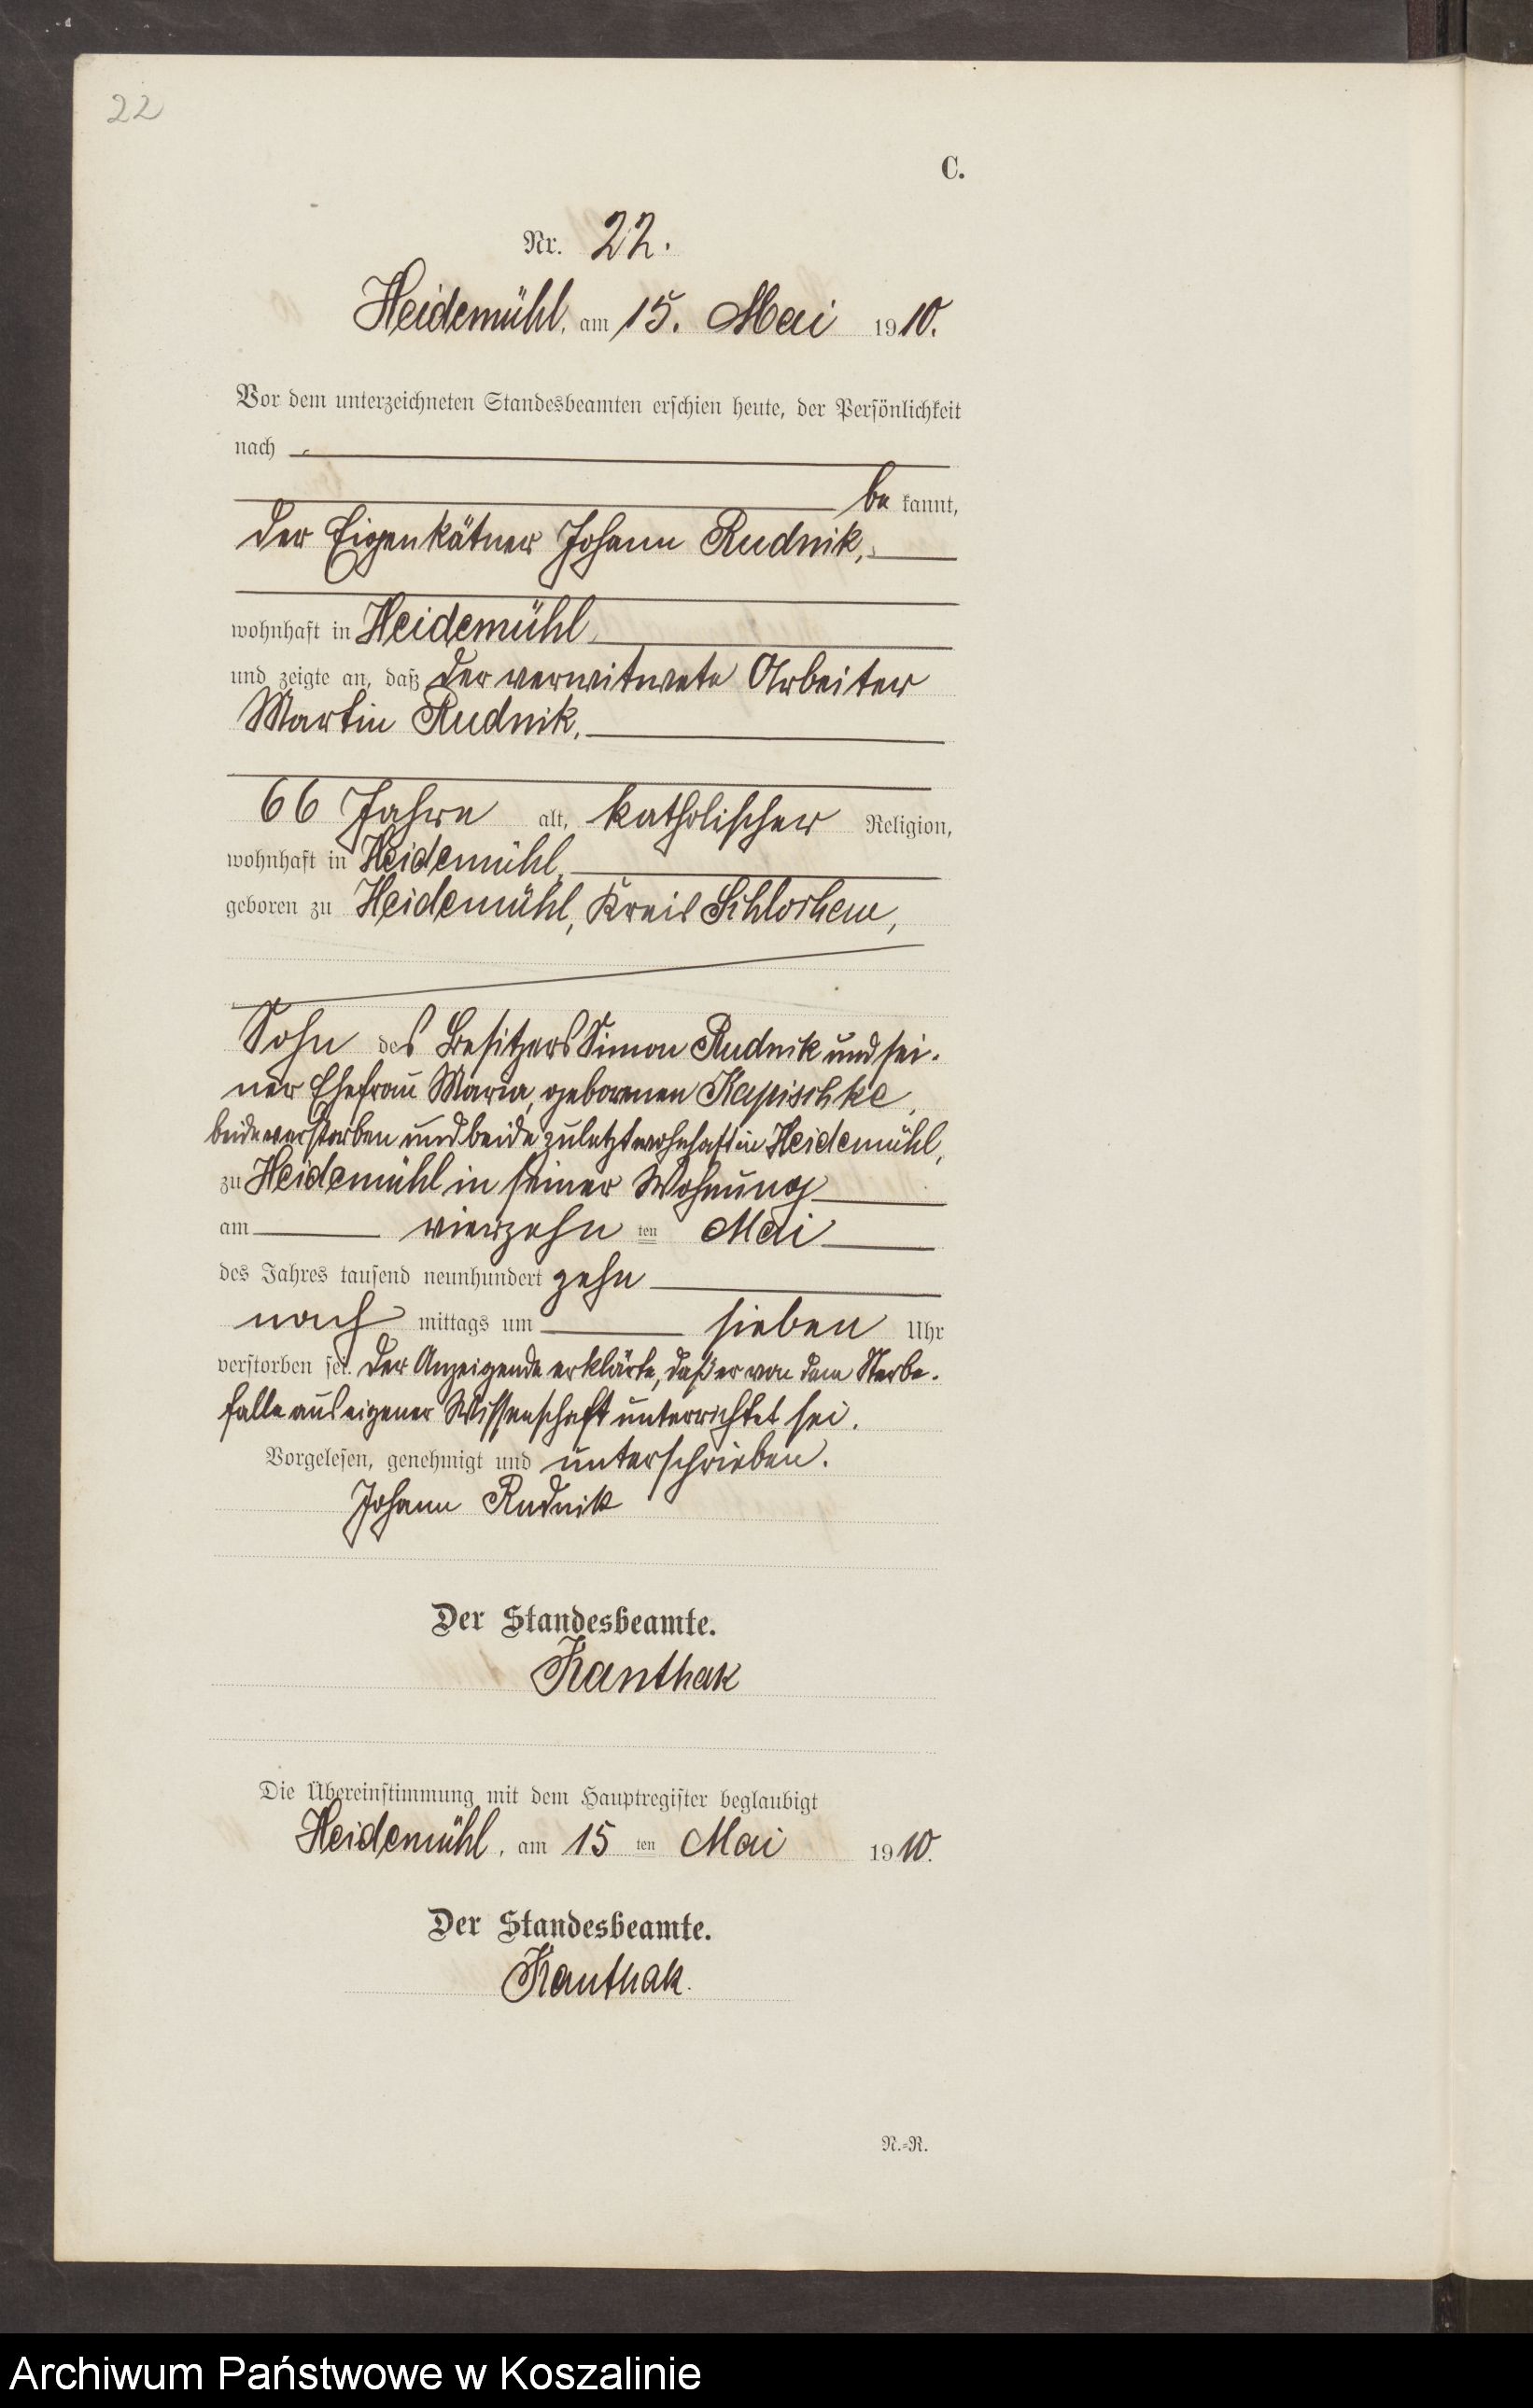 22
C.
Nr. 22.
Heidemühl, am 15. Mai 1910.
Vor dem unterzeichneten Standesbeamten erschien heute, der Persönlichkeit
nach
be kannt,
der Eigenkätner Johann Rudnik,
wohnhaft in Heidemühl,
und zeigte an, daß der verwitwete Arbeiter
Martin Rudnik,
66 Jahre alt, katholischer Religion,
wohnhaft in Heidemühl,
geboren zu Heidemühl, Kreis Schlochau,
Sohn des Besitzers Simon Rudnik und sei-
ner Ehefrau Maria, geborenen Kapischke,
beide verstorben und beide zuletzt wohnhaft in Heidemühl,
zu Heidemühl in seiner Wohnung
am vierzehn ten Mai
des Jahres tausend neunhundert zehn
nach mittags um sieben Uhr
verstorben sei. Der Anzeigende erklärte, daß er von dem Sterbe-
falle aus eigener Wissenschaft unterrichtet sei.
Vorgelesen, genehmigt und unterschrieben.
Johann Rudnik
Der Standesbeamte.
Kanthak
Die Übereinstimmung mit dem Hauptregister beglaubigt
Heidemühl, am 15 ten Mai 1910.
Der Standesbeamte.
Kanthak.
N.-R.
Archiwum Państwowe w Koszalinie